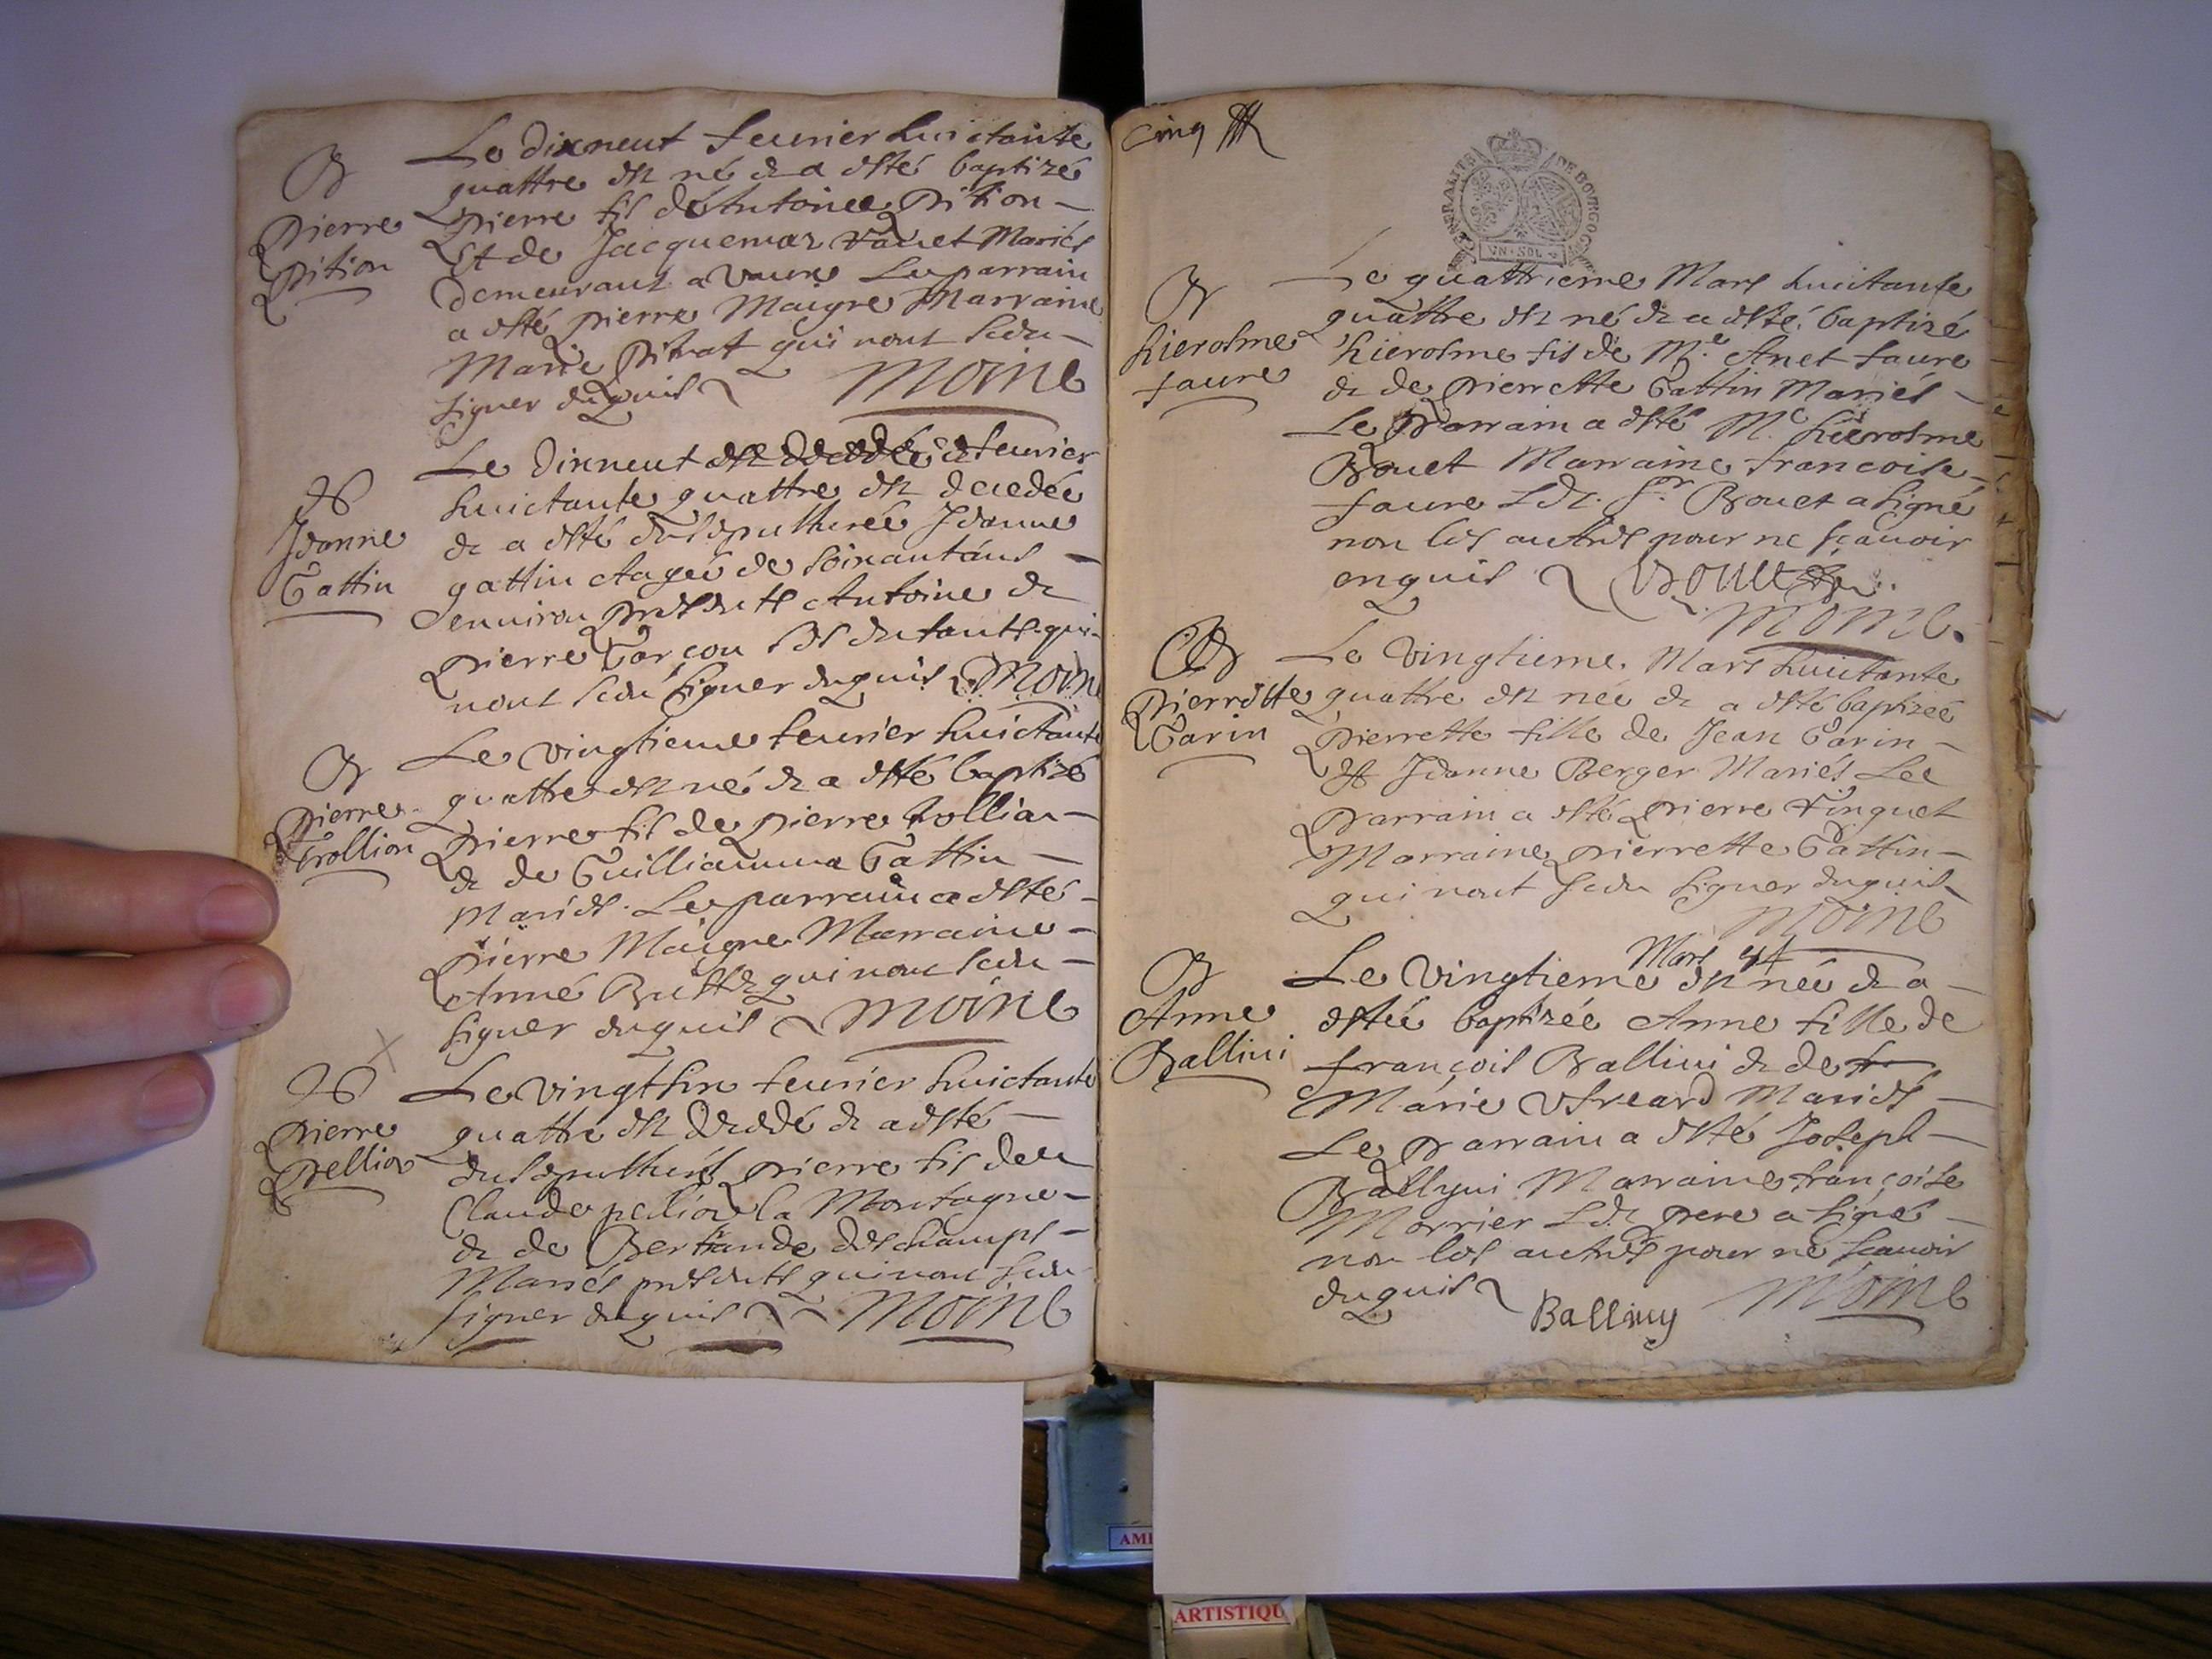 B
Pierre
Pition
Le dixneuf feurier huictante
quattre est né & a esté baptizé
Pierre fils de Antoinee Pition
Et de Jacquemaz Mariés
demeurant a Vaux Le parrain
a esté pierre Maigre Marraine
Marie Pitrat qui n'ont sceu
signer enquis Moine
S
Jeanne
Gattin
Le dixneuf est decedée feurier
huictante quattre est decedée
& a esté ensepulturée Jeanne
gattin aagée de soixant'ans
enuiron presents Antoine &
pierre Garçon ses enfants qui
n'ont sceu signer enquis Moine
B
Pierre
Trollion
Le vingtieme feurier huictante
quattre est né & a esté baptizé
Pierre fils de pierre trollion
& de Guilliauma Gattin
Mariés. Le parrain a esté
pierre Maigre Marraine
Anne qui n'ont sceu
signer enquis Moine
S
Pierre
Pellion
Le vingtsix feurier huictante
quattre est decedé & a esté
ensepulturé pierre fils de
Claude pelion la Montagne
& de Bertrande deschamps
Mariés presents qui n'ont sceu
signer enquis Moine
Cinq
GENERALITE DE BOURGOGNE
VN·SOL
B
hierosme
faure
Le quattrieme Mars huictante
quattre est né & a esté baptizé
hierosme fils de Me Anet faure
& de pierrette Gattin Mariés
Le Parrain a esté Me hierosme
Bouet Marraine francoise
faure Led. Sr Bouet a signé
non les autres pour ne sçauoir
enquis Bouet
Moine
B
Pierrette
Garin
Le Vingtieme Mars huictante
quattre est née & a esté baptizée
Pierrette fille de Jean Garin
Et Jeanne Berger Mariés Le
Parrain a esté pierre Tinguet
Marraine pierrette Gattin
qui n'ont sceu signer enquis
Moine
B
Anne
Ballini
Mars 84
Le Vingtieme est née & a
estée baptizée Anne fille de
françois Ballini & de fr
Marie Mariés
Le Parrain a esté Joseph
Ballyni Marraine françoise
Morrier Led. pere a signé
non les autres pour ne sçauoir
enquis Balliny Moine
AMI
ARTISTIQU